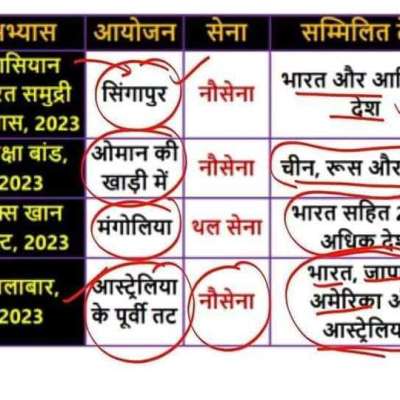 भ्यास आयोजन सेना सम्मिलित दे
सियान
त समुद्री
ास, 2023
सिंगापुर
नौसेना
भारत और आसि
देश
क्षा बांड,
2023
ओमान की
खाड़ी में
नौसेना
चीन, रूस और
क्स खान
स्ट, 2023
मंगोलिया
थल सेना
भारत सहित 2
अधिक देश
लाबार,
2023
आस्ट्रेलिया
के पूर्वी तट
नौसेना
भारत, जापा
अमेरिका औ
आस्ट्रेलिय